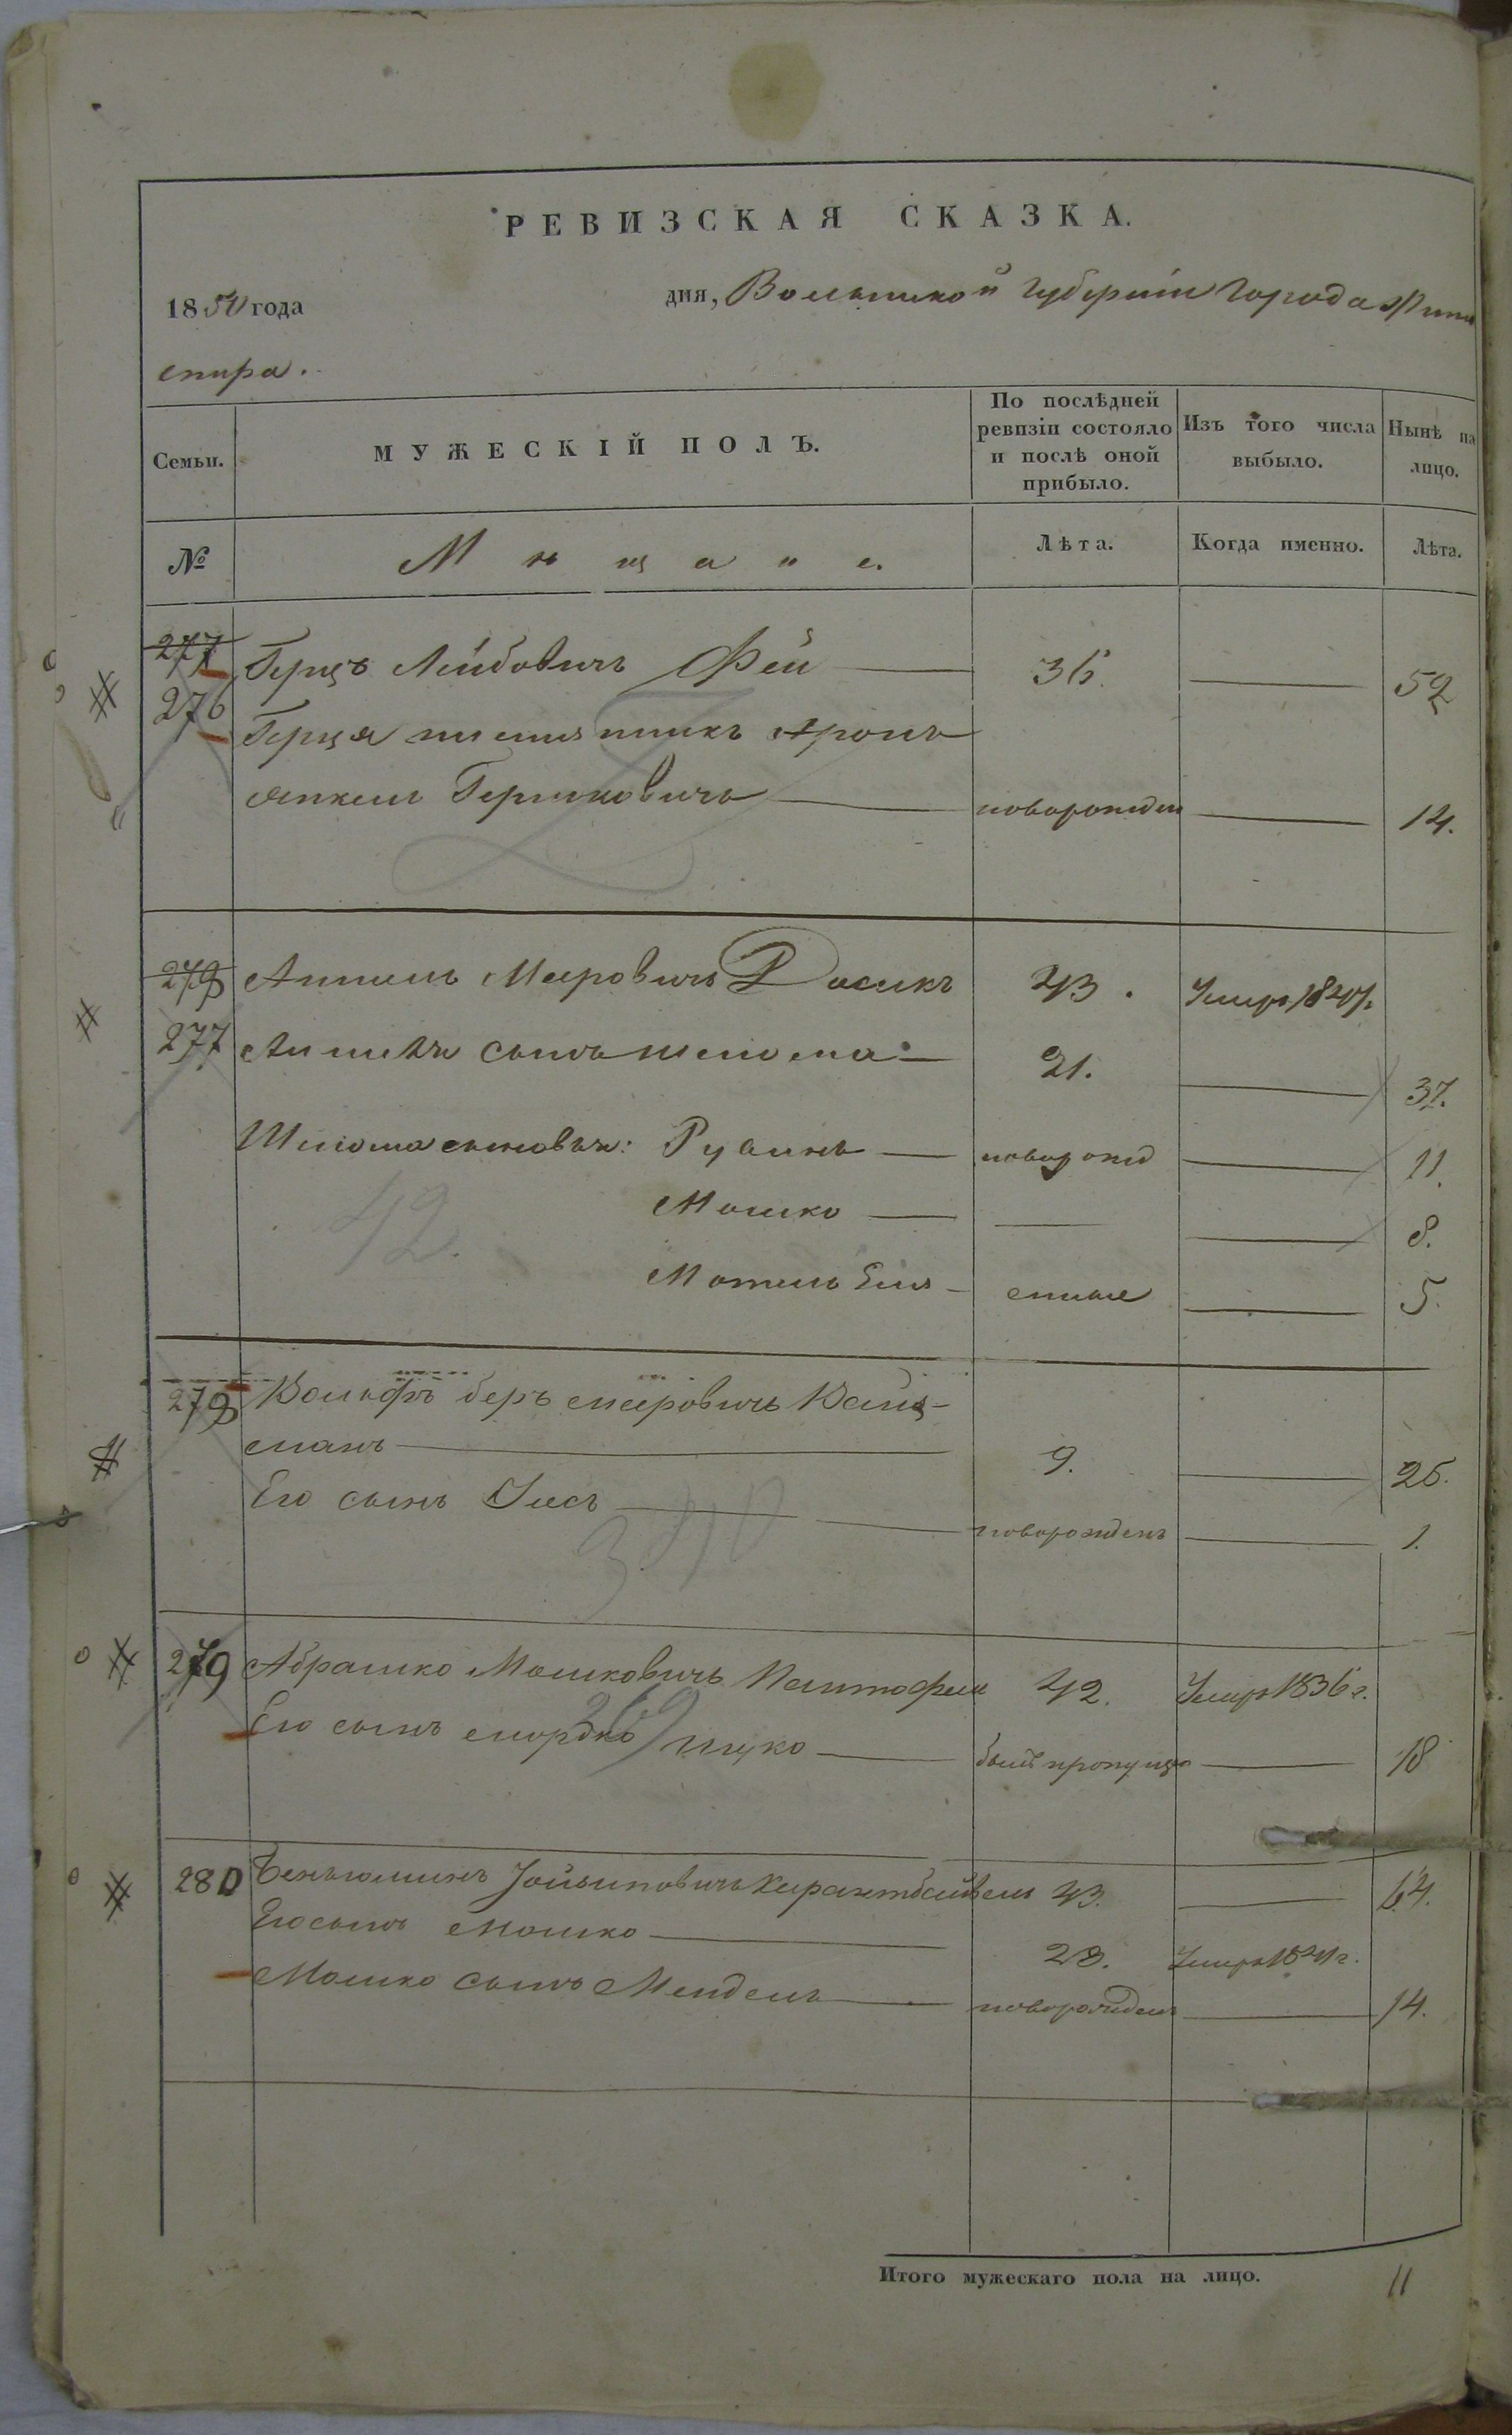 РЕВИЗСКАЯ СКАЗКА.
1850 года дня, Волынской Губернии Города Жито
мира.
Семьи. МУЖЕСКІЙ ПОЛЪ. По послѣдней ревизіи состояло и послѣ оной прибыло. Изъ того числа выбыло. Нынѣ на лицо.
№ Мѣщане. Лѣта. Когда именно. Лѣта.
277 Герцъ Лейбовичъ Фей 36. 52
276 Герца племянникъ Аронъ
Янкель Гершковичъ новорожден 14.
Аншель Мееровичъ 43. Умеръ
277 Аншеля сынъ Шлома 21. 37.
Шлома сыновья: Рувинъ новорожд 11.
Мошко 8.
42.
Мотель 5.
279 Вольфъ Беръ Мееровичъ Вайц-
манъ 9. 25.
Его сынъ новорожденъ 1.
340
279 Абрашко Мошковичъ Пантофел 42. Умеръ 1836 г.
Его сынъ Мордко Ицко былъ пропущ 18
269
280 Беньюминъ 43. 64.
Его сынъ Мошко 28. Умеръ
Мошко сынъ Мендель новорожден 14.
Итого мужескаго пола на лицо. 11